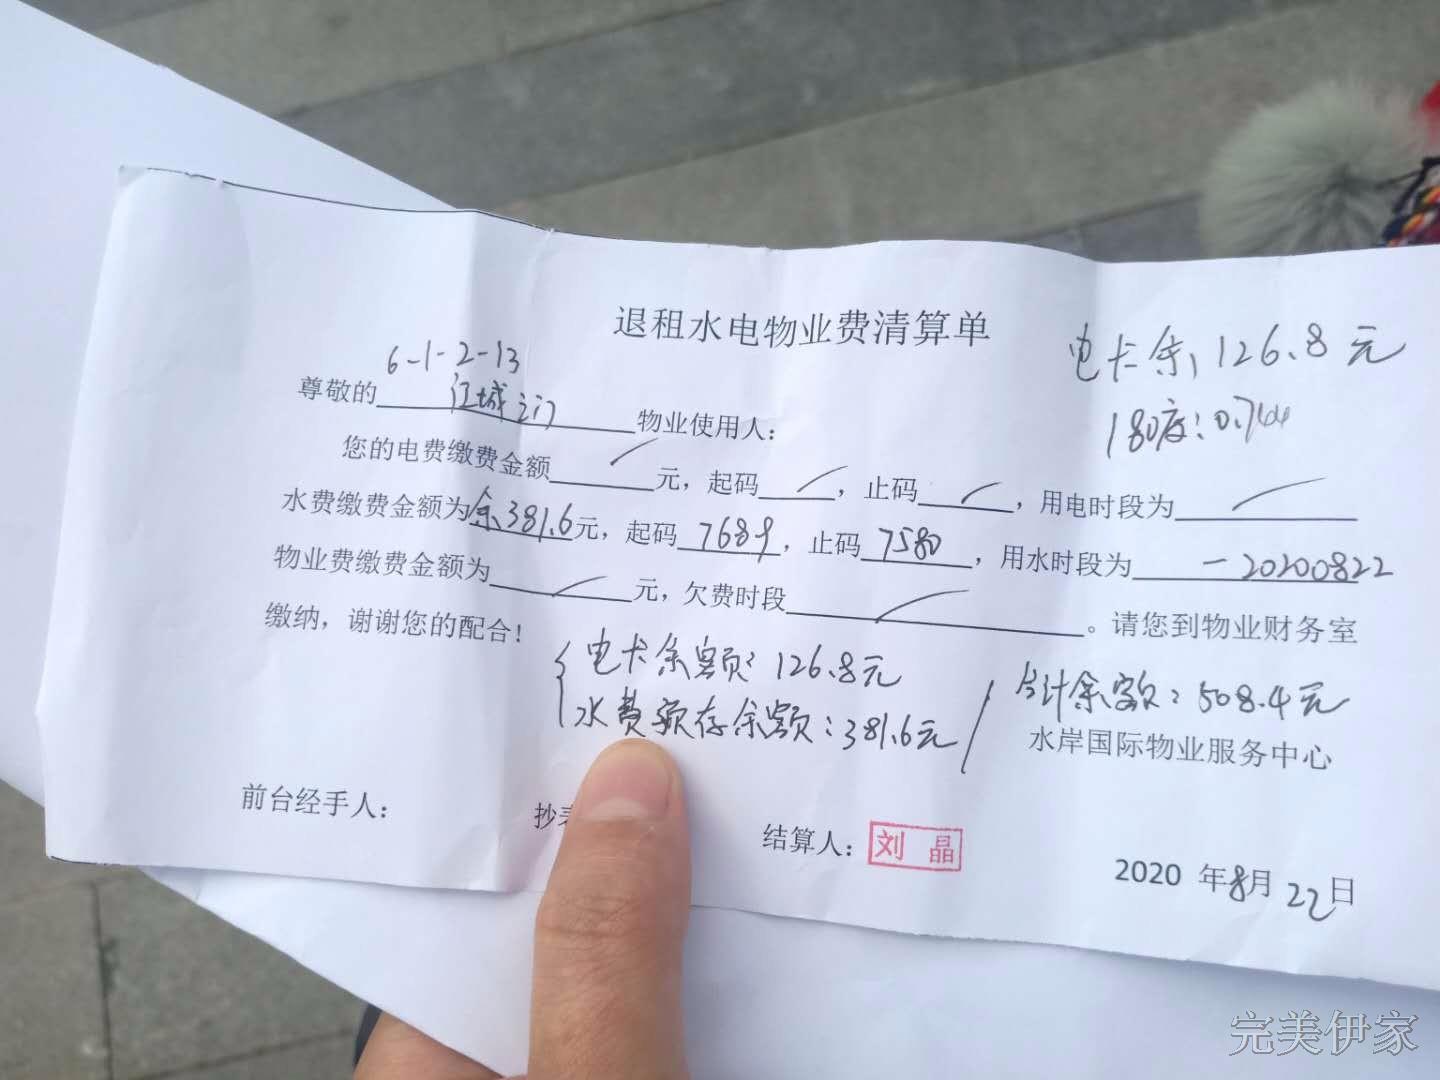 退租水电物业费清算单
电卡余126.8元
180度:0.704
6-1-2-13
尊敬的江城之门物业使用人:
您的电费缴费金额/元,起码/,止码/,用电时段为/
水费缴费金额为余381.6元,起码7689,止码7580,用水时段为-20200822
物业费缴费金额为/元,欠费时段/。请您到物业财务室
缴纳,谢谢您的配合!
电卡余额:126.8元
水费预存余额:381.6元
合计余额:508.4元
水岸国际物业服务中心
前台经手人: 抄表 结算人:刘晶
2020年8月22日
完美伊家